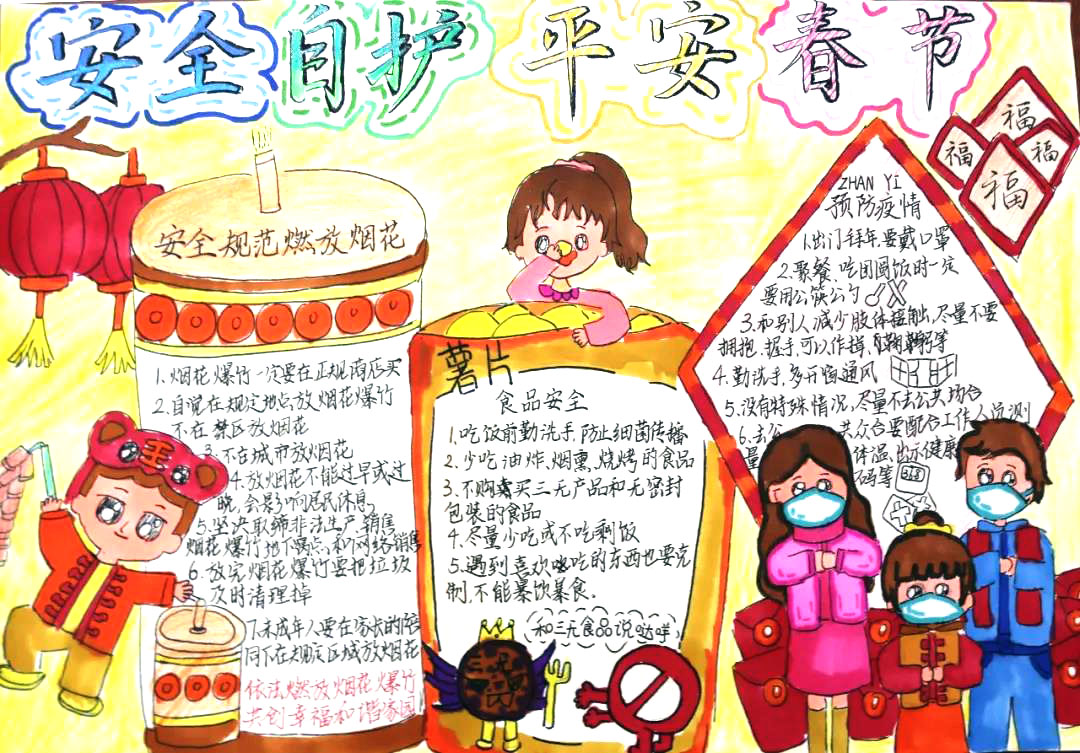 安全自护 平安春节
福
福
福
福
安全规范燃放烟花
1.烟花爆竹一定要在正规商店买
2.自觉在规定地点放烟花爆竹
不在禁区放烟花
3.不在城市放烟花
4.放烟花不能过早或过
晚,会影响居民休息,
5.坚决取缔非法生产、销售
烟花爆竹地下窝点,和网络销售
6.放完烟花爆竹要把垃圾
及时清理掉
7.未成年人要在家长的陪
同下在规定区域放烟花
依法燃放烟花爆竹
共创幸福和谐家园
薯片
食品安全
1.吃饭前勤洗手,防止细菌传播
2.少吃油炸、烟熏、烧烤的食品
3.不购买三无产品和无密封
包装的食品
4.尽量少吃或不吃剩饭
5.遇到喜欢吃的东西也要克
制,不能暴饮暴食.
和三无食品说哒咩
ZHAN YI
预防疫情
1.出门拜年,要戴口罩
2.聚餐、吃团圆饭时一定
要用公筷公勺
3.和别人减少肢体接触,尽量不要
拥抱、握手,可以作揖、鞠躬等
4.勤洗手,多开窗通风
5.没有特殊情况,尽量不去公共场合
6.去公共众合要配合工作人员测
量体温,出示健康
码等